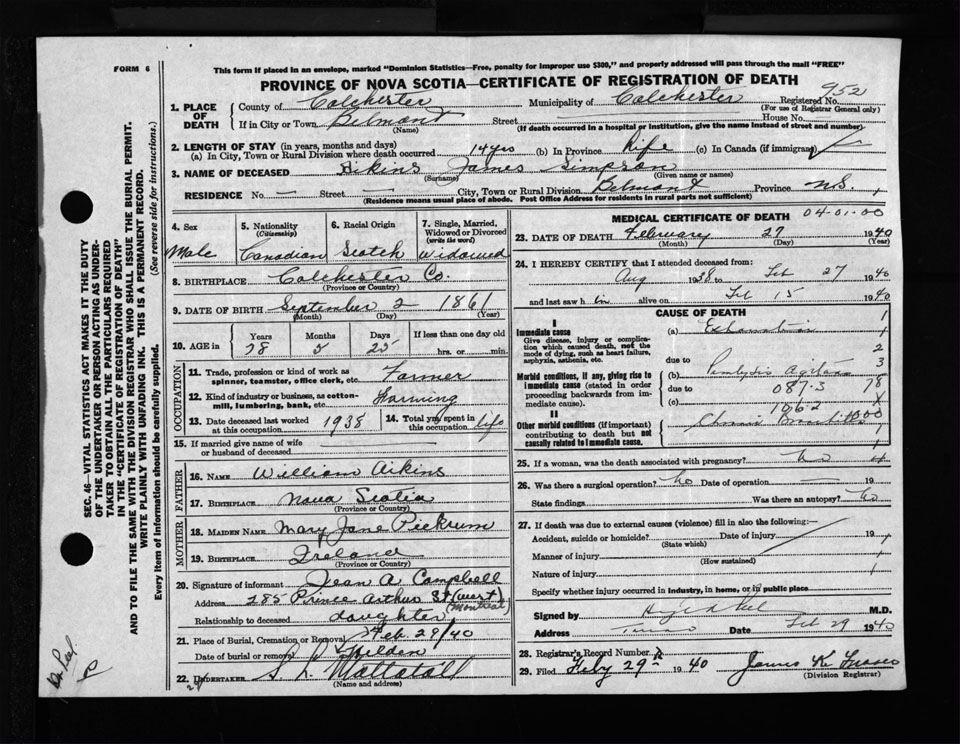 FORM 6
This form if placed in an envelope, marked "Dominion Statistics—Free, penalty for improper use $300," and properly addressed will pass through the mail "FREE"
PROVINCE OF NOVA SCOTIA—CERTIFICATE OF REGISTRATION OF DEATH
1. PLACE OF DEATH County of Colchester Municipality of Colchester Registered No. 952
(For use of Registrar General only)
If in City or Town Belmont Street House No.
(Name) (If death occurred in a hospital or institution, give the name instead of street and number)
2. LENGTH OF STAY (in years, months and days)
(a) In City, Town or Rural Division where death occurred 14 yrs (b) In Province Life (c) In Canada (if immigrant)
3. NAME OF DECEASED Aikins James Simpson
(Surname) (Given name or names)
RESIDENCE No. — Street — City, Town or Rural Division Belmont Province N.S.
(Residence means usual place of abode. Post Office Address for residents in rural parts not sufficient)
4. Sex Male
5. Nationality (Citizenship) Canadian
6. Racial Origin Scotch
7. Single, Married, Widowed or Divorced (write the word) Widowed
8. BIRTHPLACE Colchester Co.
(Province or Country)
9. DATE OF BIRTH September 2 1861
(Month) (Day) (Year)
10. AGE in Years 78 Months 5 Days 25 If less than one day old hrs. or min.
OCCUPATION
11. Trade, profession or kind of work as spinner, teamster, office clerk, etc. Farmer
12. Kind of industry or business, as cotton-mill, lumbering, bank, etc. Farming
13. Date deceased last worked at this occupation 1938
14. Total yrs spent in this occupation life
15. If married give name of wife or husband of deceased
FATHER
16. NAME William Aikins
17. BIRTHPLACE Nova Scotia
(Province or Country)
MOTHER
18. MAIDEN NAME Mary Jane Pickrum
19. BIRTHPLACE Ireland
(Province or Country)
20. Signature of informant Jean A Campbell
Address 285 Prince Arthur St (West) (Montreal)
Relationship to deceased daughter
21. Place of Burial, Cremation or Removal
Date of burial or removal Feb. 29/40
Hilden
22. UNDERTAKER S. L. Mattatall
(Name and address)
MEDICAL CERTIFICATE OF DEATH 04-01-00
23. DATE OF DEATH February 27 1940
(Month) (Day) (Year)
24. I HEREBY CERTIFY that I attended deceased from:
Aug 1938 to Feb 27 1940
and last saw h im alive on Feb 15 1940
CAUSE OF DEATH
I
Immediate cause (a) Exhaustion
Give disease, injury or complication which caused death, not the mode of dying, such as heart failure, asphyxia, asthenia, etc.
due to
Morbid conditions, if any, giving rise to immediate cause (stated in order proceeding backwards from immediate cause). (b) Paralysis Agitans
due to 087-3
(c) 1062
II
Other morbid conditions (if important) contributing to death but not causally related to immediate cause. Chronic Bronchitis
25. If a woman, was the death associated with pregnancy? no
26. Was there a surgical operation? No Date of operation — 19
State findings Was there an autopsy? No
27. If death was due to external causes (violence) fill in also the following:—
Accident, suicide or homicide? Date of injury 19
(State which)
Manner of injury
(How sustained)
Nature of injury
Specify whether injury occurred in industry, in home, or in public place
Signed by M.D.
Address Truro Date Feb 29 1940
28. Registrar's Record Number
29. Filed Feby 29 1940 James K. Fraser
(Division Registrar)
SEC. 46—VITAL STATISTICS ACT MAKES IT THE DUTY OF THE UNDERTAKER OR PERSON ACTING AS UNDERTAKER TO OBTAIN ALL THE PARTICULARS REQUIRED IN THE "CERTIFICATE OF REGISTRATION OF DEATH" AND TO FILE THE SAME WITH THE DIVISION REGISTRAR WHO SHALL ISSUE THE BURIAL PERMIT.
WRITE PLAINLY WITH UNFADING INK. THIS IS A PERMANENT RECORD.
Every item of information should be carefully supplied. (See reverse side for instructions.)